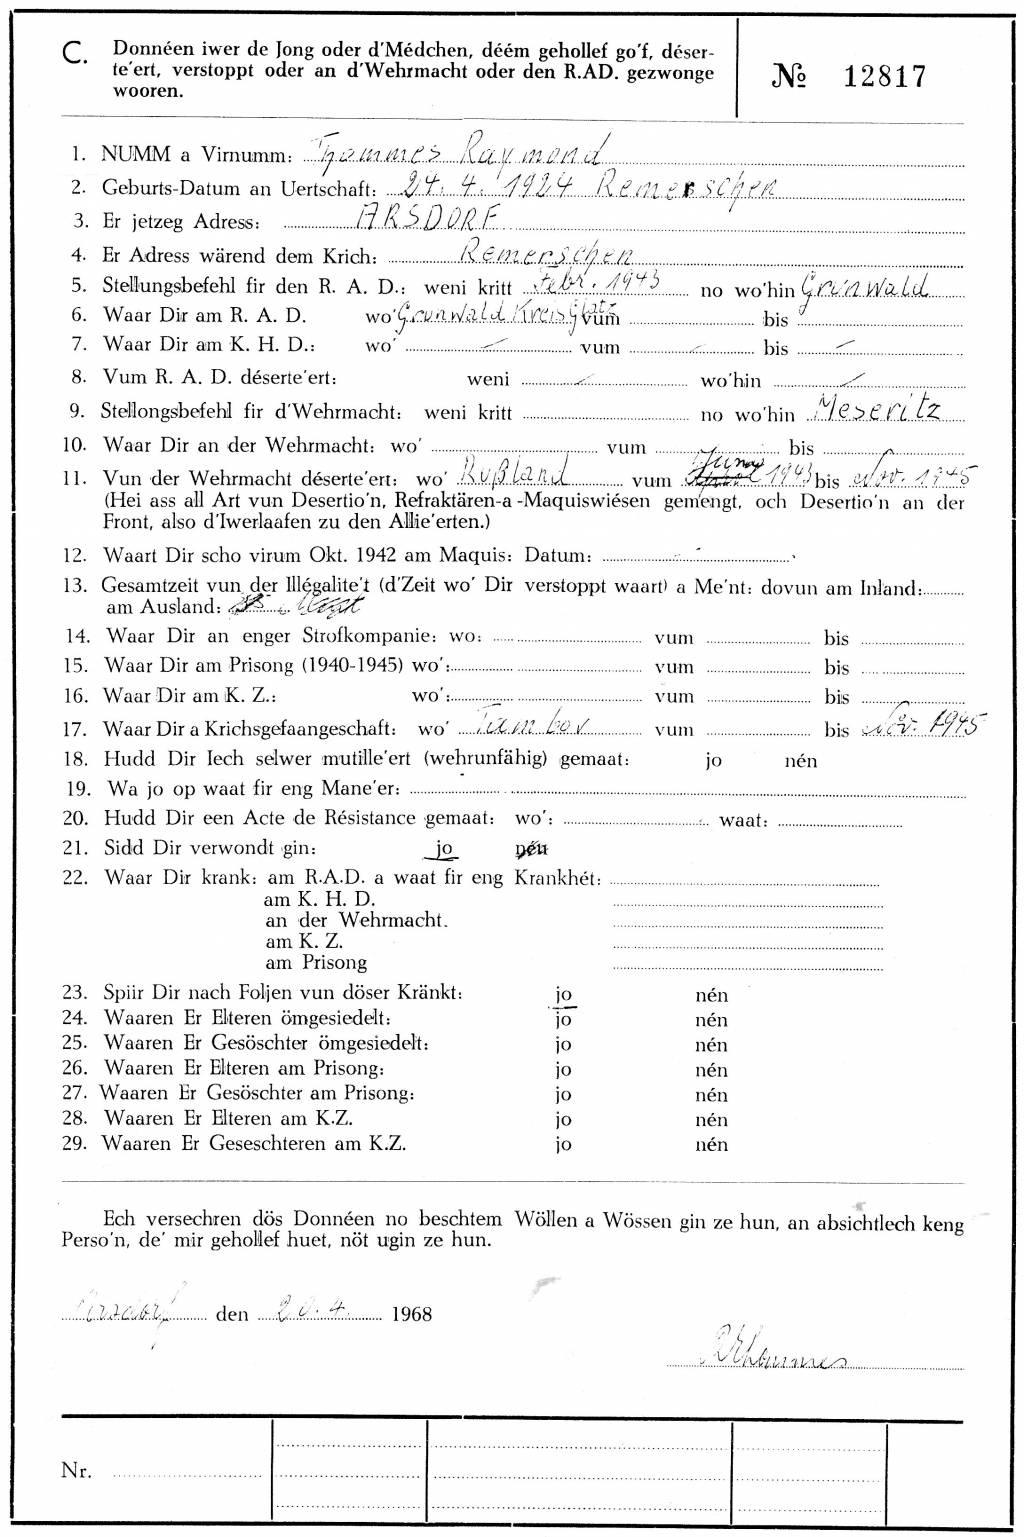 C. Donnéen iwer de Jong oder d'Médchen, déém gehollef go'f, déser-
te'ert, verstoppt oder an d'Wehrmacht oder den R.AD. gezwonge
wooren.
№ 12817
1. NUMM a Virnumm: Thommes Raymond
2. Geburts-Datum an Uertschaft: 24. 4. 1924 Remerschen
3. Er jetzeg Adress: ARSDORF
4. Er Adress wärend dem Krich: Remerschen
5. Stellungsbefehl fir den R. A. D.: weni kritt Febr. 1943 no wo'hin Grunwald
6. Waar Dir am R. A. D. wo' Grunwald Kreis Glatz vum bis
7. Waar Dir am K. H. D.: wo' vum bis
8. Vum R. A. D. déserte'ert: weni wo'hin
9. Stellongsbefehl fir d'Wehrmacht: weni kritt no wo'hin Meseritz
10. Waar Dir an der Wehrmacht: wo' vum bis
11. Vun der Wehrmacht déserte'ert: wo' Rußland vum Juni 1943 bis Nov. 1945
(Hei ass all Art vun Desertio'n, Refraktären-a -Maquiswiésen gemengt, och Desertio'n an der
Front, also d'Iwerlaafen zu den Allie'erten.)
12. Waart Dir scho virum Okt. 1942 am Maquis: Datum:
13. Gesamtzeit vun der Illégalite't (d'Zeit wo' Dir verstoppt waart) a Me'nt: dovun am Inland:
am Ausland:
14. Waar Dir an enger Strofkompanie: wo: vum bis
15. Waar Dir am Prisong (1940-1945) wo': vum bis
16. Waar Dir am K. Z.: wo': vum bis
17. Waar Dir a Krichsgefaangeschaft: wo' Tambov vum bis Nov. 1945
18. Hudd Dir Iech selwer mutille'ert (wehrunfähig) gemaat: jo nén
19. Wa jo op waat fir eng Mane'er:
20. Hudd Dir een Acte de Résistance gemaat: wo': waat:
21. Sidd Dir verwondt gin: jo nén
22. Waar Dir krank: am R.A.D. a waat fir eng Krankhét:
am K. H. D.
an der Wehrmacht.
am K. Z.
am Prisong
23. Spiir Dir nach Foljen vun döser Kränkt: jo nén
24. Waaren Er Elteren ömgesiedelt: jo nén
25. Waaren Er Gesöschter ömgesiedelt: jo nén
26. Waaren Er Elteren am Prisong: jo nén
27. Waaren Er Gesöschter am Prisong: jo nén
28. Waaren Er Elteren am K.Z. jo nén
29. Waaren Er Geseschteren am K.Z. jo nén
Ech versechren dös Donnéen no beschtem Wöllen a Wössen gin ze hun, an absichtlech keng
Perso'n, de' mir gehollef huet, nöt ugin ze hun.
Arsdorf den 20. 4. 1968
RThommes
Nr.